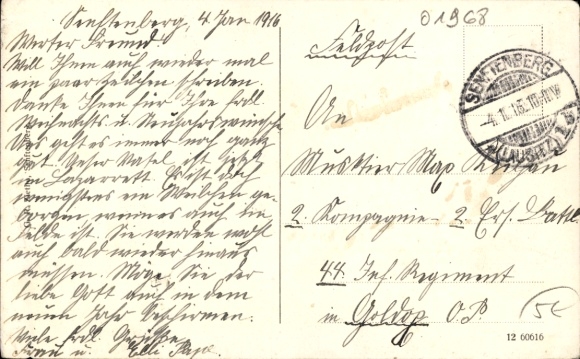 Senftenberg, 4 Jan 1916
Werter Freund!
Will Ihnen auch wieder mal
ein paar Zeilchen schreiben.
Danke Ihnen für Ihre frdl.
Weihnachts u. Neujahrswünsche
Uns geht es immer noch ganz
gut. Unser Vater ist jetzt
im Lazarett. Ist doch
wenigstens ein Weilchen ge-
borgen, wenn es auch im
Felde ist. Sie werden wohl
auch bald wieder hinaus
müssen. Möge Sie der
liebe Gott auch in dem
neuen Jahr beschirmen.
Viele frdl. Grüße
Frau u. Elli
01968
Feldpost
SENFTENBERG
(LAUSITZ)
An
Musktier Max
2. Kompagnie - 2. Ers. Batl.
44 Inf. Regiment
in Goldap O.P.
5€
12 60616